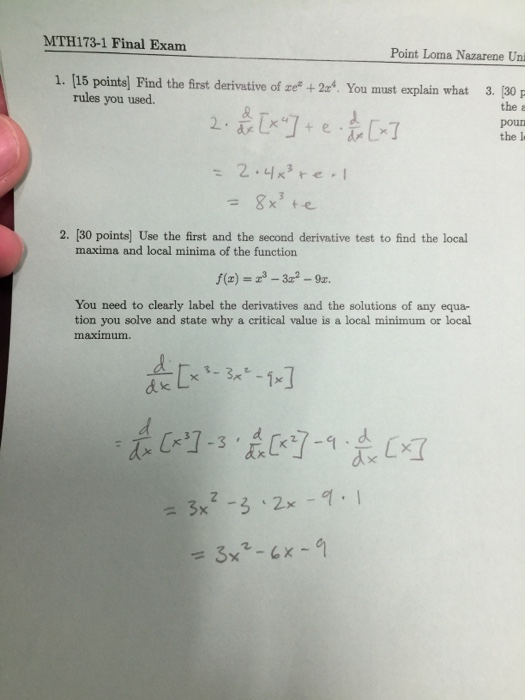 MTH173-1 Final Exam
Point Loma Nazarene Uni
1. [15 points] Find the first derivative of xeˣ + 2x⁴. You must explain what
rules you used.
2 · d/dx [x⁴] + e · d/dx [x]
= 2 · 4x³ + e · 1
= 8x³ + e
2. [30 points] Use the first and the second derivative test to find the local
maxima and local minima of the function
f(x) = x³ − 3x² − 9x.
You need to clearly label the derivatives and the solutions of any equa-
tion you solve and state why a critical value is a local minimum or local
maximum.
d/dx [x³ - 3x² - 9x]
= d/dx [x³] - 3 · d/dx [x²] - 9 · d/dx [x]
= 3x² - 3 · 2x - 9 · 1
= 3x² - 6x - 9
3. [30 p
the
poun
the l